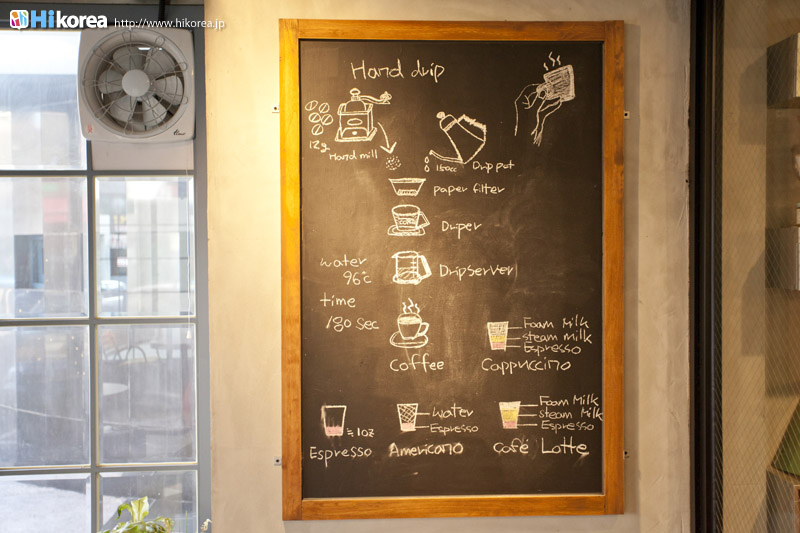 Hikorea http://www.hikorea.jp
Hand drip
12g
Hand mill
150cc
Drip pot
paper filter
Driper
water
96°c
Dripserver
time
180 sec
Coffee
Foam Milk
steam milk
Espresso
Cappuccino
≒1oz
Espresso
water
Espresso
Americano
Foam Milk
steam Milk
Espresso
café Latte